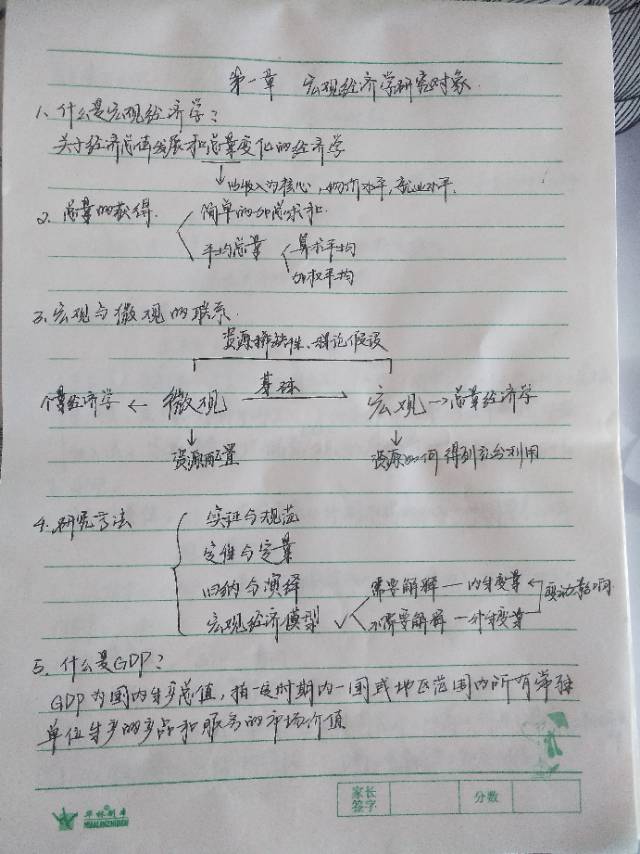 第一章 宏观经济学研究对象
1、什么是宏观经济学？
关于经济总体发展和总量变化的经济学
以收入为核心，物价水平，就业水平。
2、总量的获得。
简单的加总求和
平均总量
算术平均
加权平均
3、宏观与微观的联系
资源稀缺性、理论假设
个量经济学 ← 微观 基础 宏观 → 总量经济学
资源配置
资源如何得到充分利用
4、研究方法
实证与规范
定性与定量
归纳与演绎
需要解释 — 内生变量
变动影响
宏观经济模型
不需要解释 — 外生变量
5、什么是GDP？
GDP为国内生产总值，指一定时期内一国或地区范围内所有常驻
单位生产的产品和服务的市场价值
家长
签字
分数